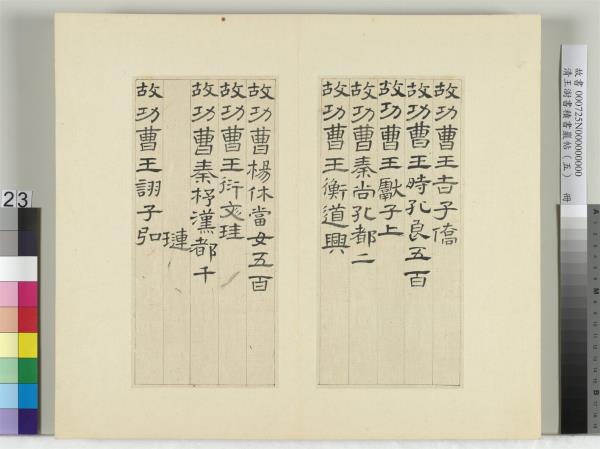 故功曹王吉子僑
故功曹王時孔良五百
故功曹王獻子上
故功曹秦尚孔都二
故功曹王衡道興
故功曹楊休當女五百
故功曹王衍文珪
故功曹秦杼漢都千
璉
故功曹王詡子弘
故書000725N000000000 冊
清王澍書積書巖帖(五)
23
A
M
B